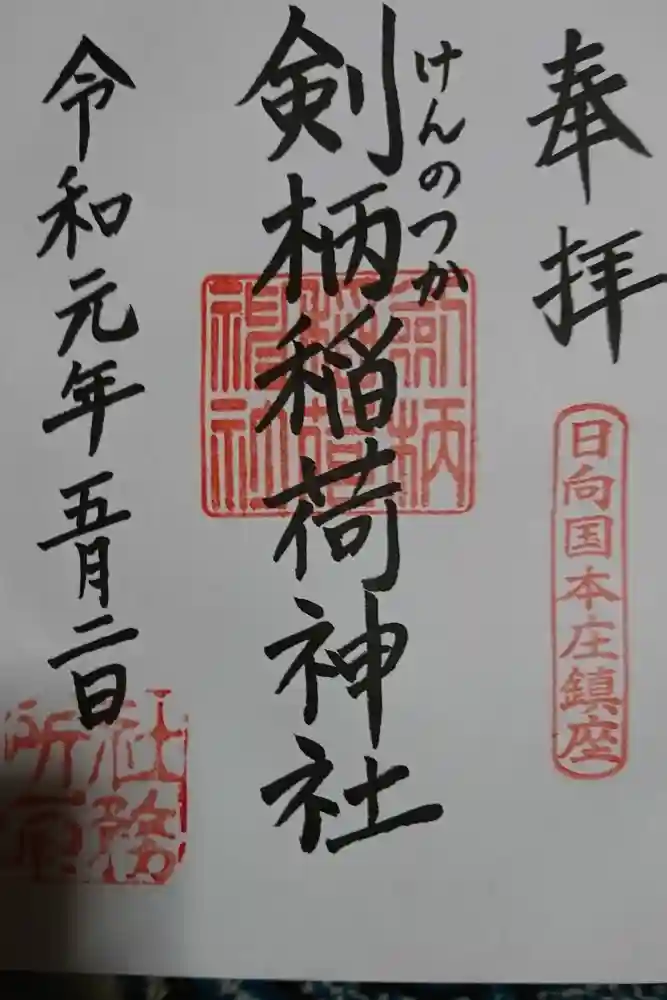 奉拝
日向国本庄鎮座
けんのつか
剣柄稲荷神社
剣柄稲荷神社
令和元年五月二日
社務所印